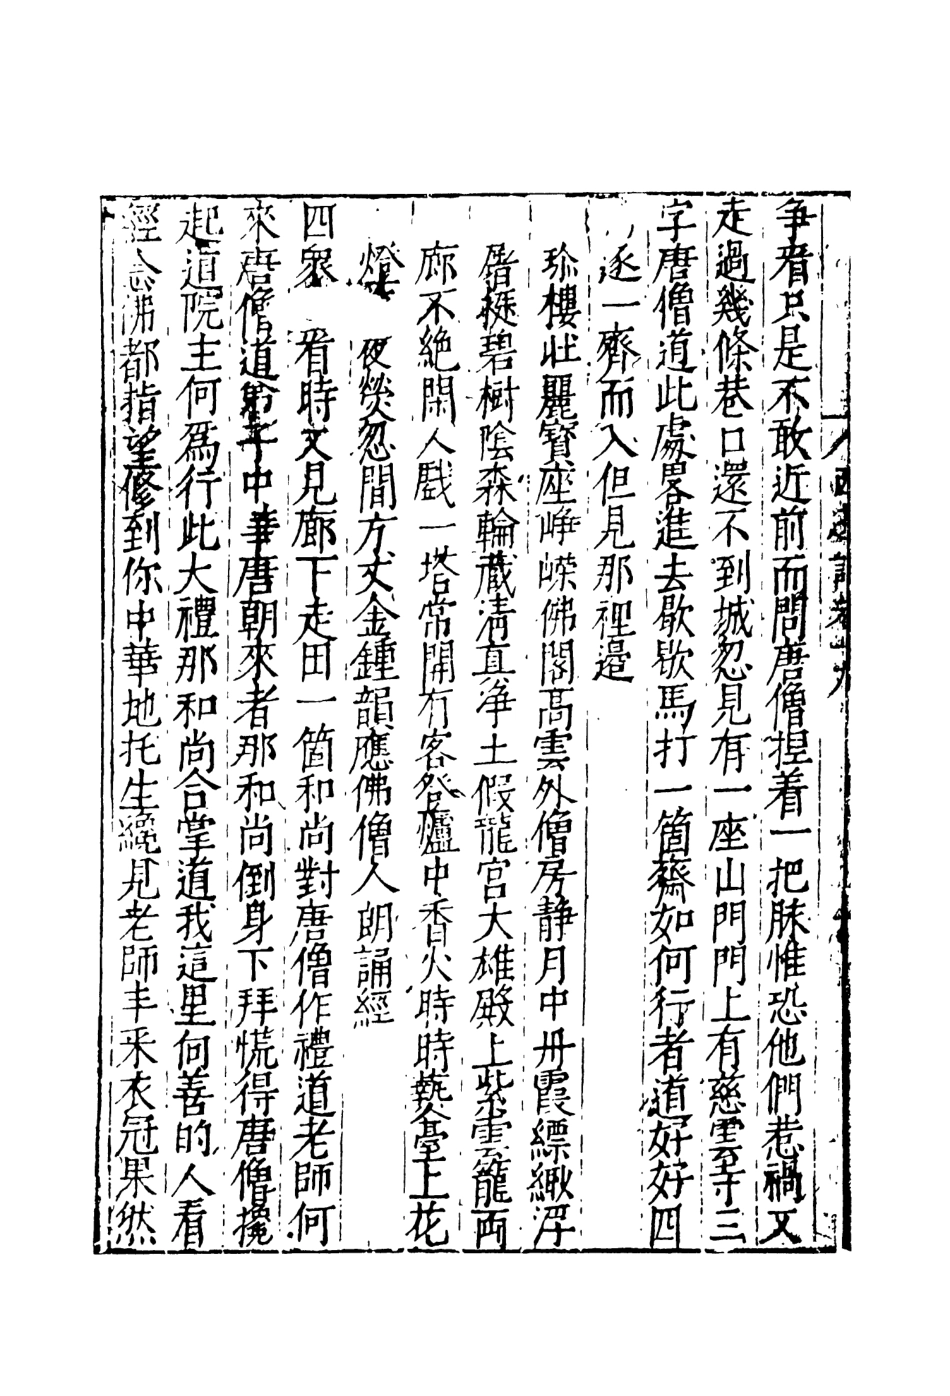 争看只是不敢近前而問唐僧捏着一把脉惟恐他們惹禍又
走過幾條巷口還不到城忽見有一座山門門上有慈雲寺三
字唐僧道此處畧進去歇歇馬打一箇齋如何行者道好好四
遂一齊而入但見那裡邉
珎樓壮麗寳座崢嶸佛閣高雲外僧房静月中丹霞縹緲浮
屠挺碧樹陰森輪藏清真净土假龍宫大雄殿上紫雲籠両
廊不絶閑人戯一塔常開有客登爐中香火時時爇臺上花
燈夜熒忽聞方丈金鍾韻應佛僧人朗誦經
四衆看時又見廊下走出一箇和尚對唐僧作禮道老師何
來唐僧道弟子中華唐朝來者那和尚倒身下拜慌得唐僧攙
起道院主何爲行此大禮那和尚合掌道我這里向善的人看
經念佛都指望修到你中華地托生纔見老師丰采衣冠果然
西遊記卷十九